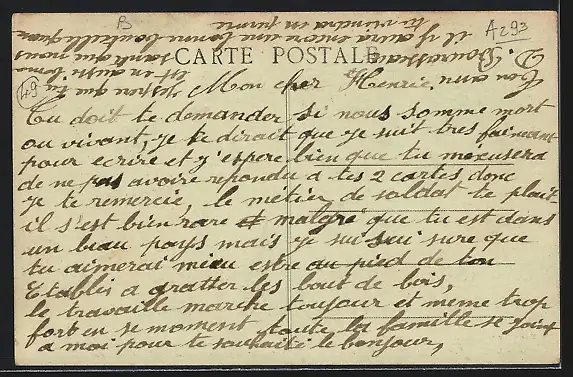 B
A293
CARTE POSTALE
49
Mon cher Henrie,
Tu doit te demander si nous somme mort
ou vivant, je te dirait que je suit tres faineant
pour ecrire et j'espere bien que tu m'excusera
de ne pas avoire repondu a tes 2 cartes donc
je te remercie, le métier de soldat te plait
il s'est bien rare et malgré que tu est dans
un beau pays mais je sui sure que
tu aimerai mieu estre au pied de ton
Etablis a gratter les bout de bois,
le travaille marche toujour et meme trop
fort en se moment toute la famille se joint
a moi pour te souhaité le bonjour,
J'espere que tu
est en aussi bonne
santé que nous
il y aura encore une bonne bouteille quan
tu viendra en perme
Ton ami